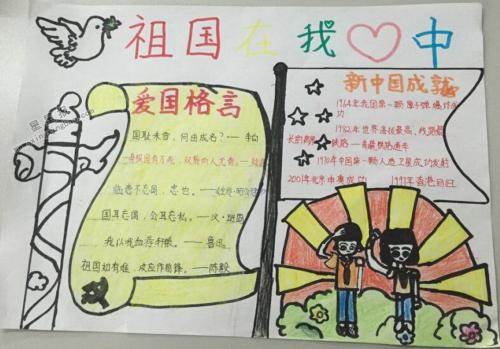 祖国在我♡中
爱国格言
国耻未雪，何由成名？——李白
身报国有万死，双鬓向人无再青。——陆游
临患不忘国，忠也。
国耳忘家，公耳忘私。——汉·班固
我以我血荐轩辕。——鲁迅
祖国如有难，汝应作前锋。——陈毅
新中国成就
1964年我国第一颗原子弹爆炸成
功
世界海拔最高、线路最
铁路——青藏铁路通车
中国第一颗人造卫星成功发射
2001年北京申奥成功 1997年香港回归